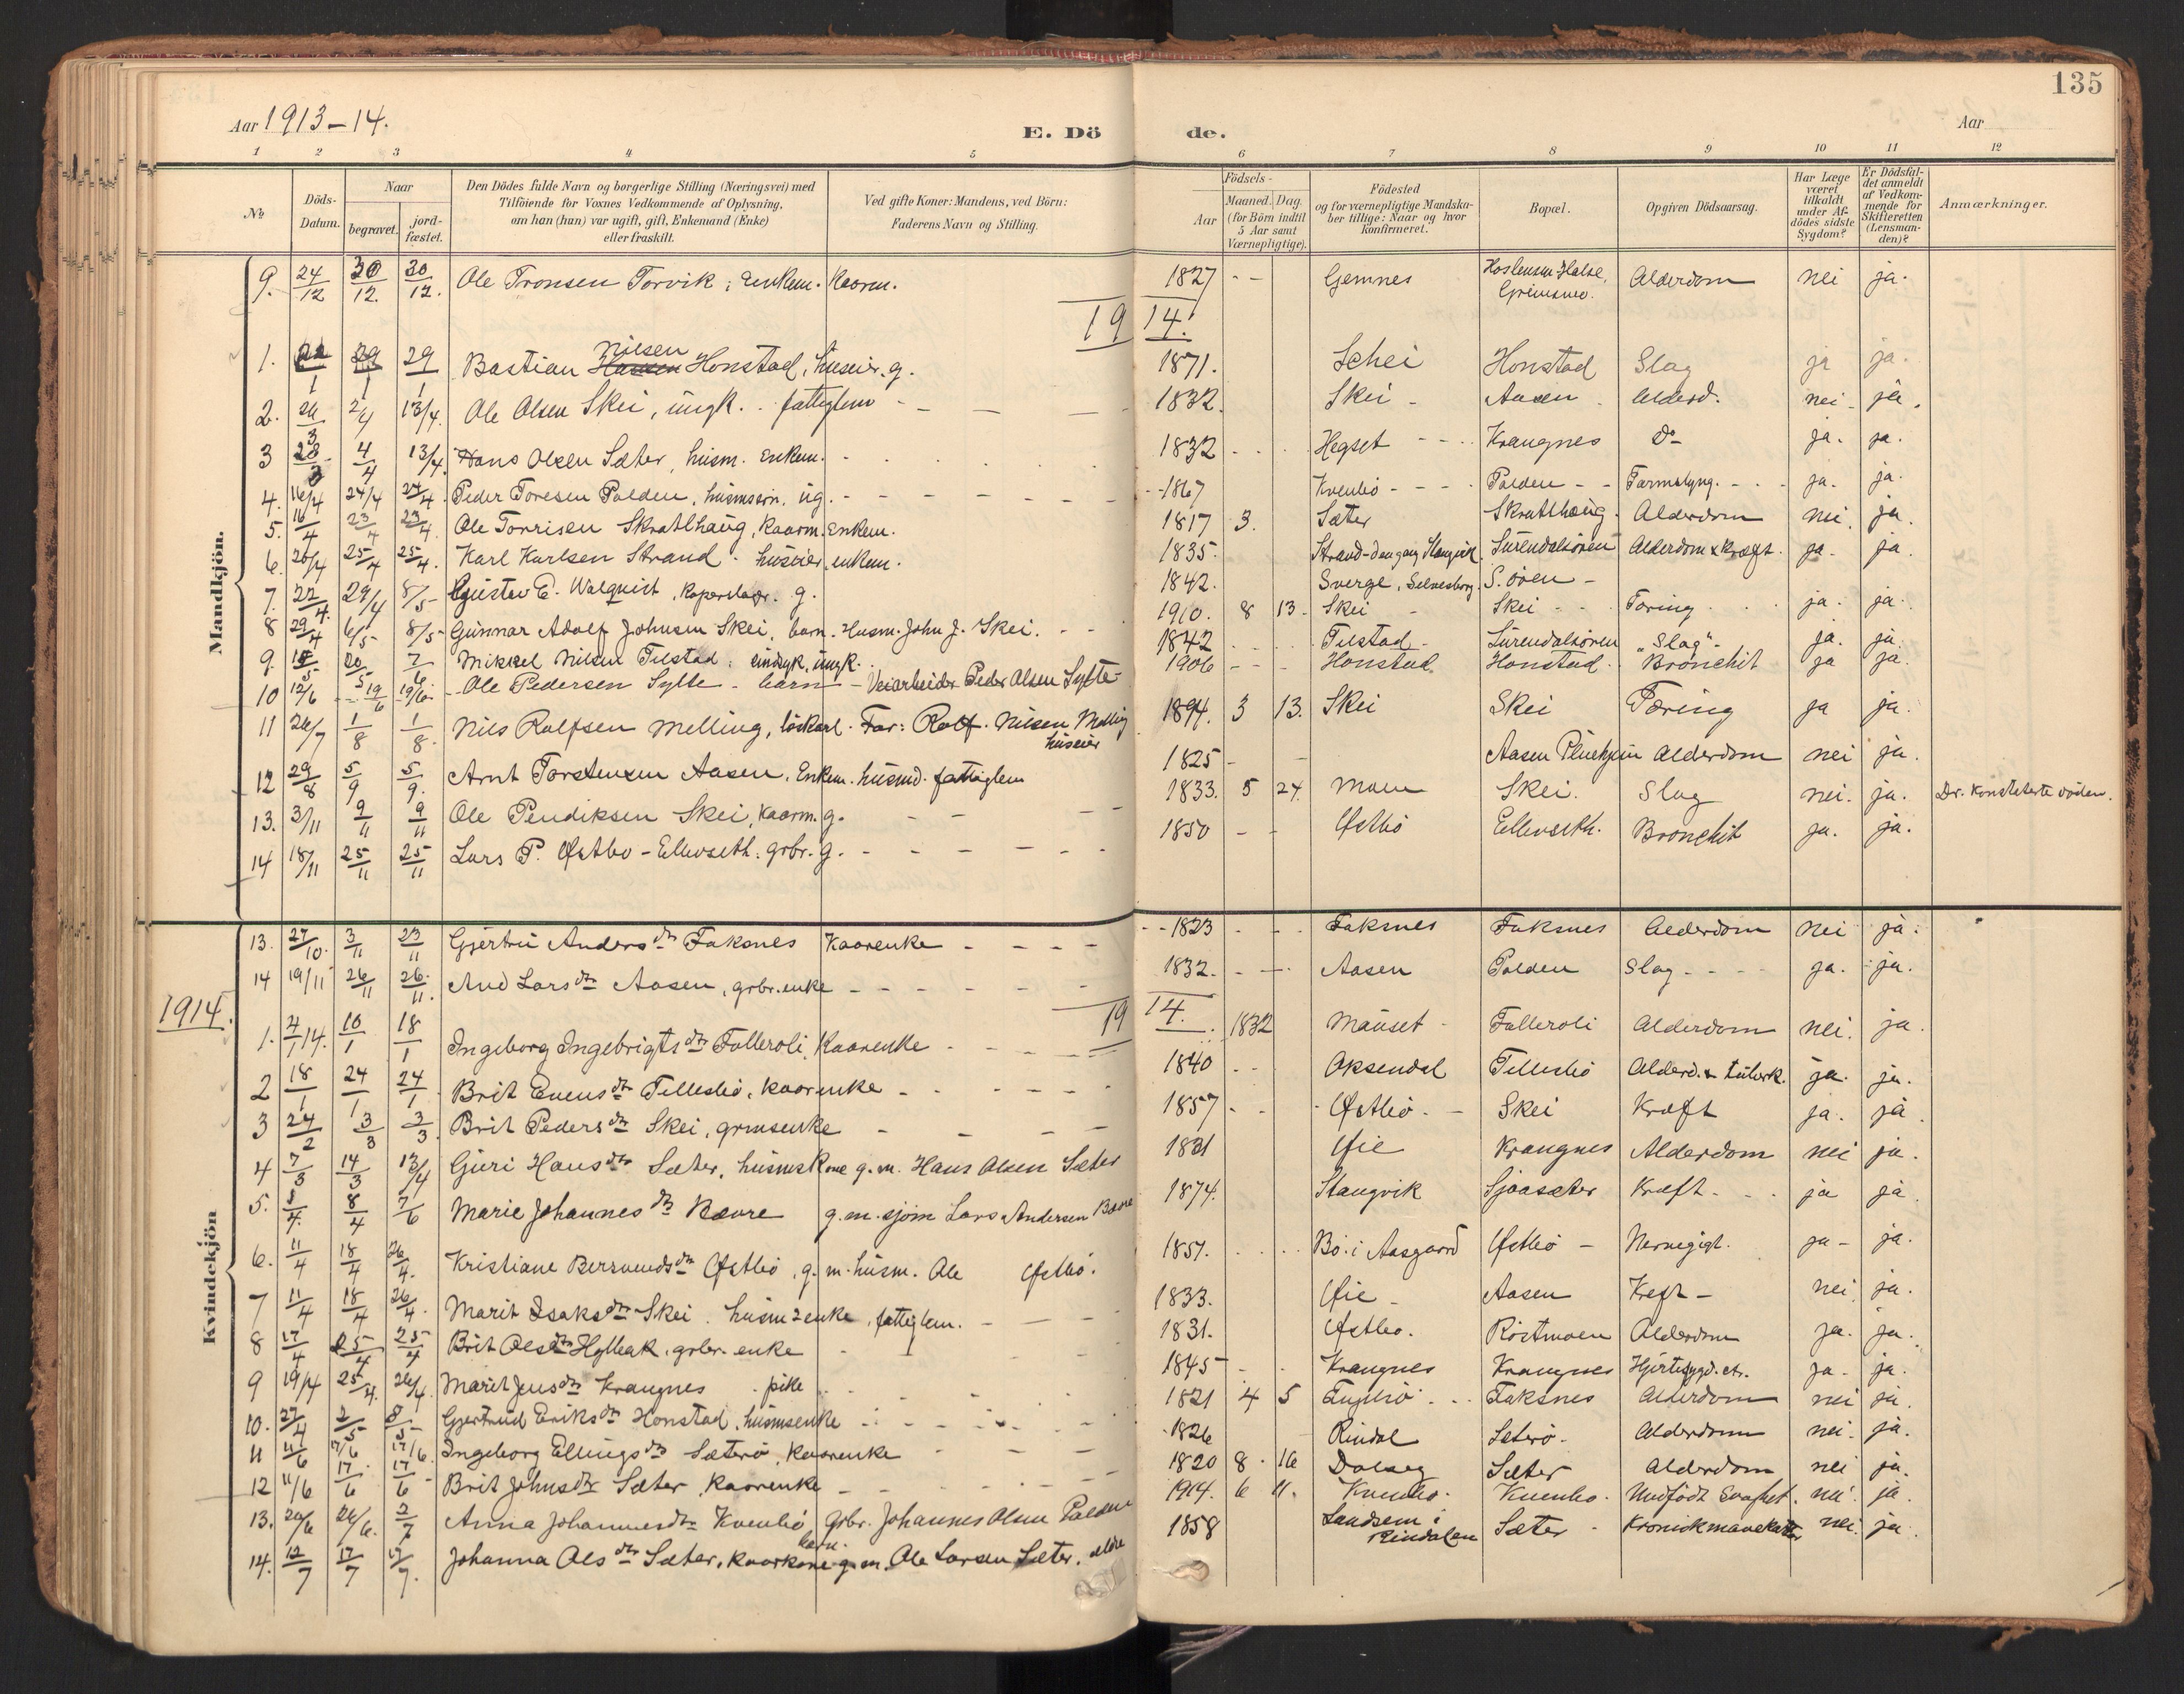 135
Aar 1913-14. E. Dö de. Aar
1 2 3 4 5 6 7 8 9 10 11 12
No
Döds-Datum.
Naar begravet. jordfæstet.
Den Dödes fulde Navn og borgerlige Stilling (Næringsvei) med Tilföiende for Voxnes Vedkommende af Oplysning, om han (hun) var ugift, gift, Enkemand (Enke) eller fraskilt.
Ved gifte Koner: Mandens, ved Börn: Faderens Navn og Stilling.
Födsels-
Aar Maaned. Dag. (for Börn indtil 5 Aar samt Værnepligtige).
Födested og for værnepligtige Mandskaber tillige: Naar og hvor konfirmeret.
Bopæl.
Opgiven Dödsaarsag.
Har Læge været tilkaldt under Afdödes sidste Sygdom?
Er Dödsfaldet anmeldt af Vedkommende for Skifteretten (Lensmanden)?
Anmærkninger.
Mandkjön.
9. 24/12 30/12 30/12. Ole Tronsen Torvik, Enkem. Kaarm. 1827 - - Gjemnes Halse, Alderdom nei ja.
1914.
1. 29/1 29/1 Bastian Nilsen Honstad, huseier. g. 1871. Schei Honstad Slag ja ja.
2. 2/4 13/4. Ole Olsen Skei, ungk. fattiglem - - - 1832. Skei - Aasen Alderd. nei - ja.
3 28/3 4/4 13/4. Hans Olsen Sæter, husm. Enkem. 1832 Hegset - - Krangnes Do ja. ja.
4. 16/4 24/4 24/4. Peder Toresen Polden, husmssøn, ug. - - - 1867 Kvenbö - - - Polden - - Tarmslyng. - - ja. ja.
5. 16/4 23/4 23/4. Ole Torrisen Skralthaug, Kaarm. Enkem. 1817 3. Sæter Skralthaug. Alderdom nei. ja.
6. 20/4 25/4 25/4. Karl Karlsen Strand. huseier, enkem. 1835. Strand Stangvik Surendalsören Alderdom & Kræft. ja. ja.
7. 22/4. 29/4 8/5 Gustav E. Walquist, Koperslagr. g. 1842. Sverge, Selvesborg. S. ören -
8 29/4 6/5 8/5 Gunnar Adolf Johnsen Skei, barn. Husm. John J. Skei. - - 1910. 8 13. Skei - Skei - - Tæring. ja. ja.
9. 15/5 20/5 7/6 Mikkel Nilsen Telstad, sindsyk, ungk. 1842 Telstad - Surendalsören „Slag“ ja. ja.
10 12/6 19/6 19/6. Ole Pedersen Sylte - barn - Veiarbeider Peder Olsen Sylte 1906 - - - Honstad Honstad. Bronchit ja ja.
11 26/7 1/8 1/8. Nils Rolfsen Melling, löskarl. Far: Rolf Nilsen Melling huseier 1894. 3 13. Skei Skei Tæring ja ja.
12 29/8 5/9 5/9. Arnt Torstensen Aasen, Enkem. husmd. fattiglem 1825 - - Aasen Pleiehjem Alderdom nei ja.
13. 3/11 9/11 9/11 Ole Pendiksen Skei, Kaarm. g. - - - 1833. 5 24. Moen Skei. Slag nei. ja. Dr. konstaterte döden.
14 18/11 25/11 25/11 Lars P. Østbö - Ellevseth. grbr. g. - - - 1850 - - Østbö Ellevseth. Bronchit ja. ja.
Kvindekjön
13. 27/10. 3/11 23/11 Gjertru Andersdtr Faksnes Kaarenke - - - 1823 - - Faksnes Faksnes Alderdom nei ja.
14 19/11 26/11 26/11. And Larsdtr Aasen, grbr. enke - - - 1832. - - Aasen Polden Slag - - - ja. ja.
1914. 1914.
1. 4/1 14. 10/1 18/1 Ingeborg Ingebrigtsdtr Talleroli, Kaarenke - - 1832 Mauset - Talleroli Alderdom nei. ja.
2 18/1 24/1 24/1. Brit Evensdtr Tellesbö, kaarenke - - - 1840 - - Øksendal Tellesbö Alderd. & tuberk. ja. ja.
3 24/2 3/3 3/3. Brit Pedersdtr Skei, grmsenke - - - 1857 - - Østbö - Skei Kræft ja. ja.
4 7/3 14/3 13/4 Guri Hansdtr Sæter, husmskone g. m. Hans Olsen Sæter 1831 Øie Krangnes Alderdom nei ja.
5. 8/4 7/6 Marie Johannesdtr Bævre g. m. sjöm Lars Andersen Bævre 1874. Stangvik Sjøasæter Kræft - ja ja.
6. 11/4 18/4 26/4. Kristiane Østbö, g. m. husm. Ole Østbö. 1857. - - Bö. i Aasgaard Østbö - Nervegigt. ja - ja.
7 11/4 18/4 26/4. Marit Isaksdtr Skei. husm enke, fattiglem. - - 1833. Øie - Aasen Kreft - nei. ja.
8 17/4 25/4 25/4 Brit Olsdtr Hylbak, grbr. enke - - 1831. Østbö. Röstmoen Alderdom ja. ja.
9 19/4 25/4. 26/4. Marit Jensdtr Krangnes - pike - - 1845 - - Krangnes Krangnes Hjertesygd. etc. ja - ja.
10. 27/4 2/5 8/5 Gjertrud Eriksdtr Honstad, husmsenke - - - 1821 4 5 - - Faksnes Alderdom nei ja.
11 11/6 17/6 17/6. Ingeborg Ellingsdtr Sæterö, Kaarenke - - - 1826 Rindal Sæterö. Alderdom nei. ja.
12 11/6 17/6 17/6 Brit Johnsdtr Sæter, Kaarenke - - - 1820 8. 16 Dalseg Sæter Alderdom nei ja.
13. 20/6 26/6. 2/7 Anna Johannesdtr Kvenbö Grbr. Johannes Olsen Polden 1914. 6 11. Kvenbo. Kvenbo. Medfödt Svaghet. nei. ja.
14. 12/7 17/7 17/7. Johanna Olsdtr Sæter, Kaarkone g. m. Ole Larsen Sæter, ældre 1858 Landsem i Rindalen Sæter - Kronisk mavekatar nei. ja.